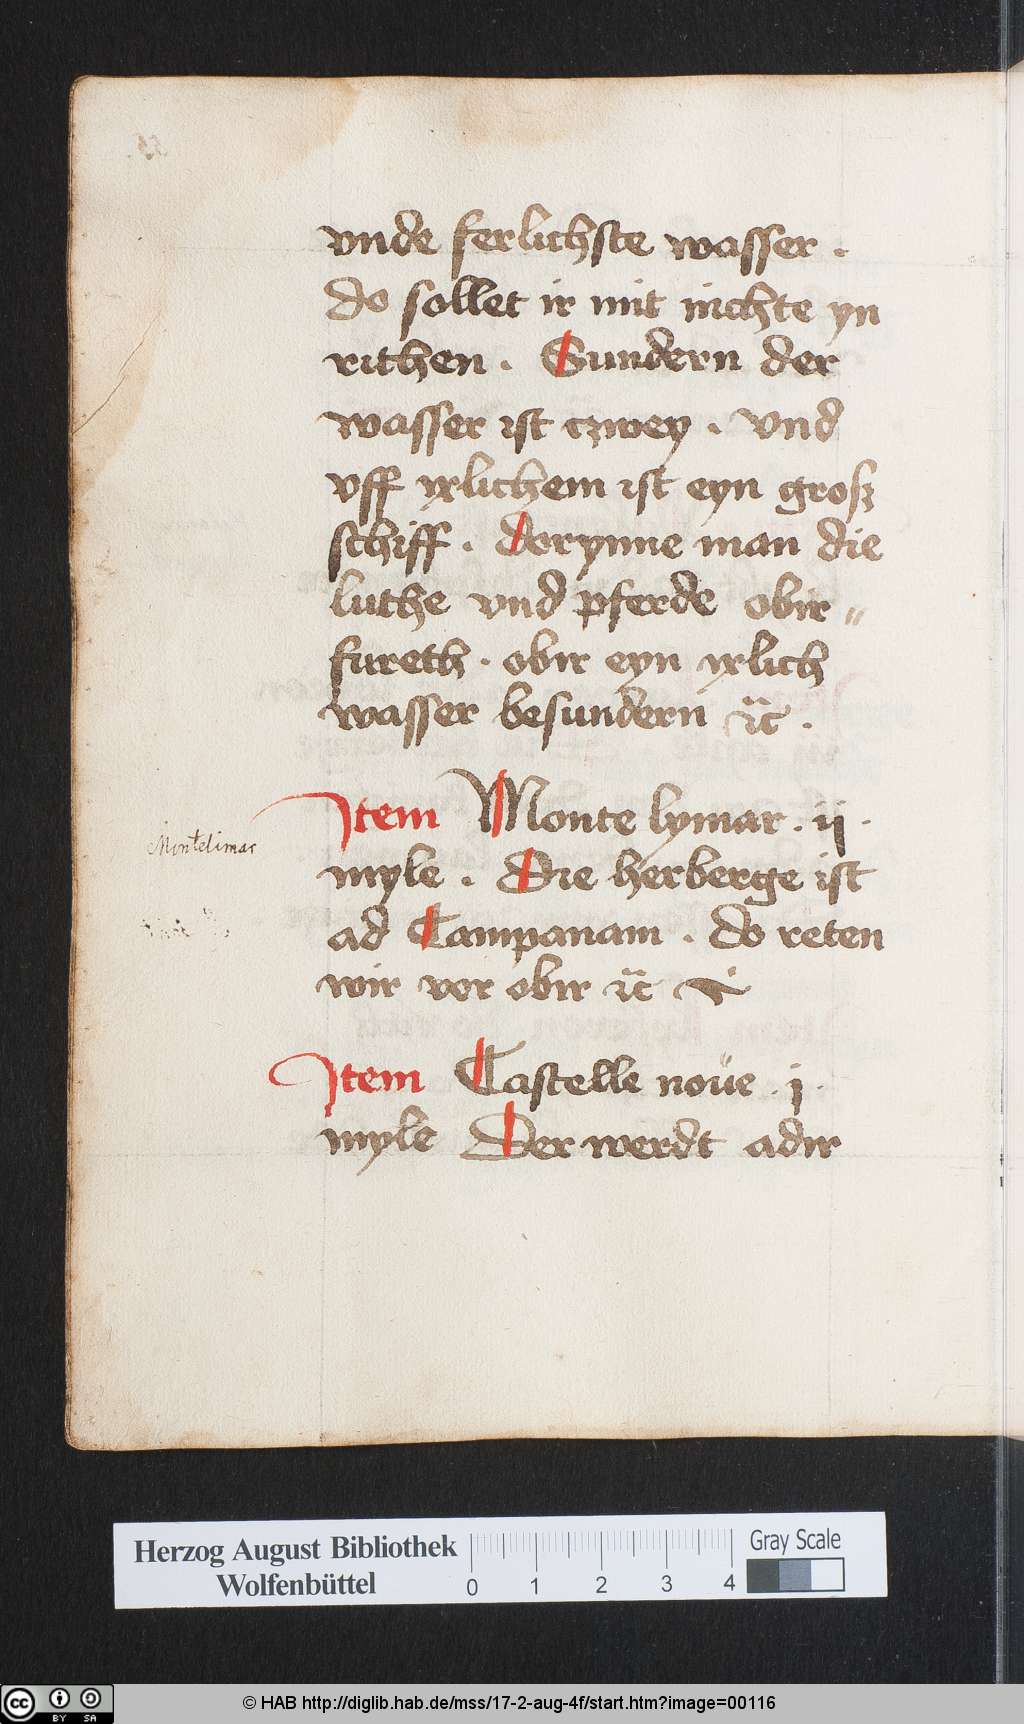 vnde ferlichste wasser .
do sollet ir mit nichte yn
rithen . Sundern der
wasser ist czwey . vnd
vff yxlichem ist eyn grosz
schiff . dorynne man die
luthe vnd pferde obir=
fureth . obir eyn yxlich
wasser besundern ꝛc .
Item Monte lymar . ij .
Montelimar
myle . Die herberge ist
ad Campanam . do reten
wir vor obir ꝛc
Item Castelle noüe . j .
myle Der werdt adir
Herzog August Bibliothek
Wolfenbüttel
0 1 2 3 4
Gray Scale
cc BY SA
© HAB http://diglib.hab.de/mss/17-2-aug-4f/start.htm?image=00116